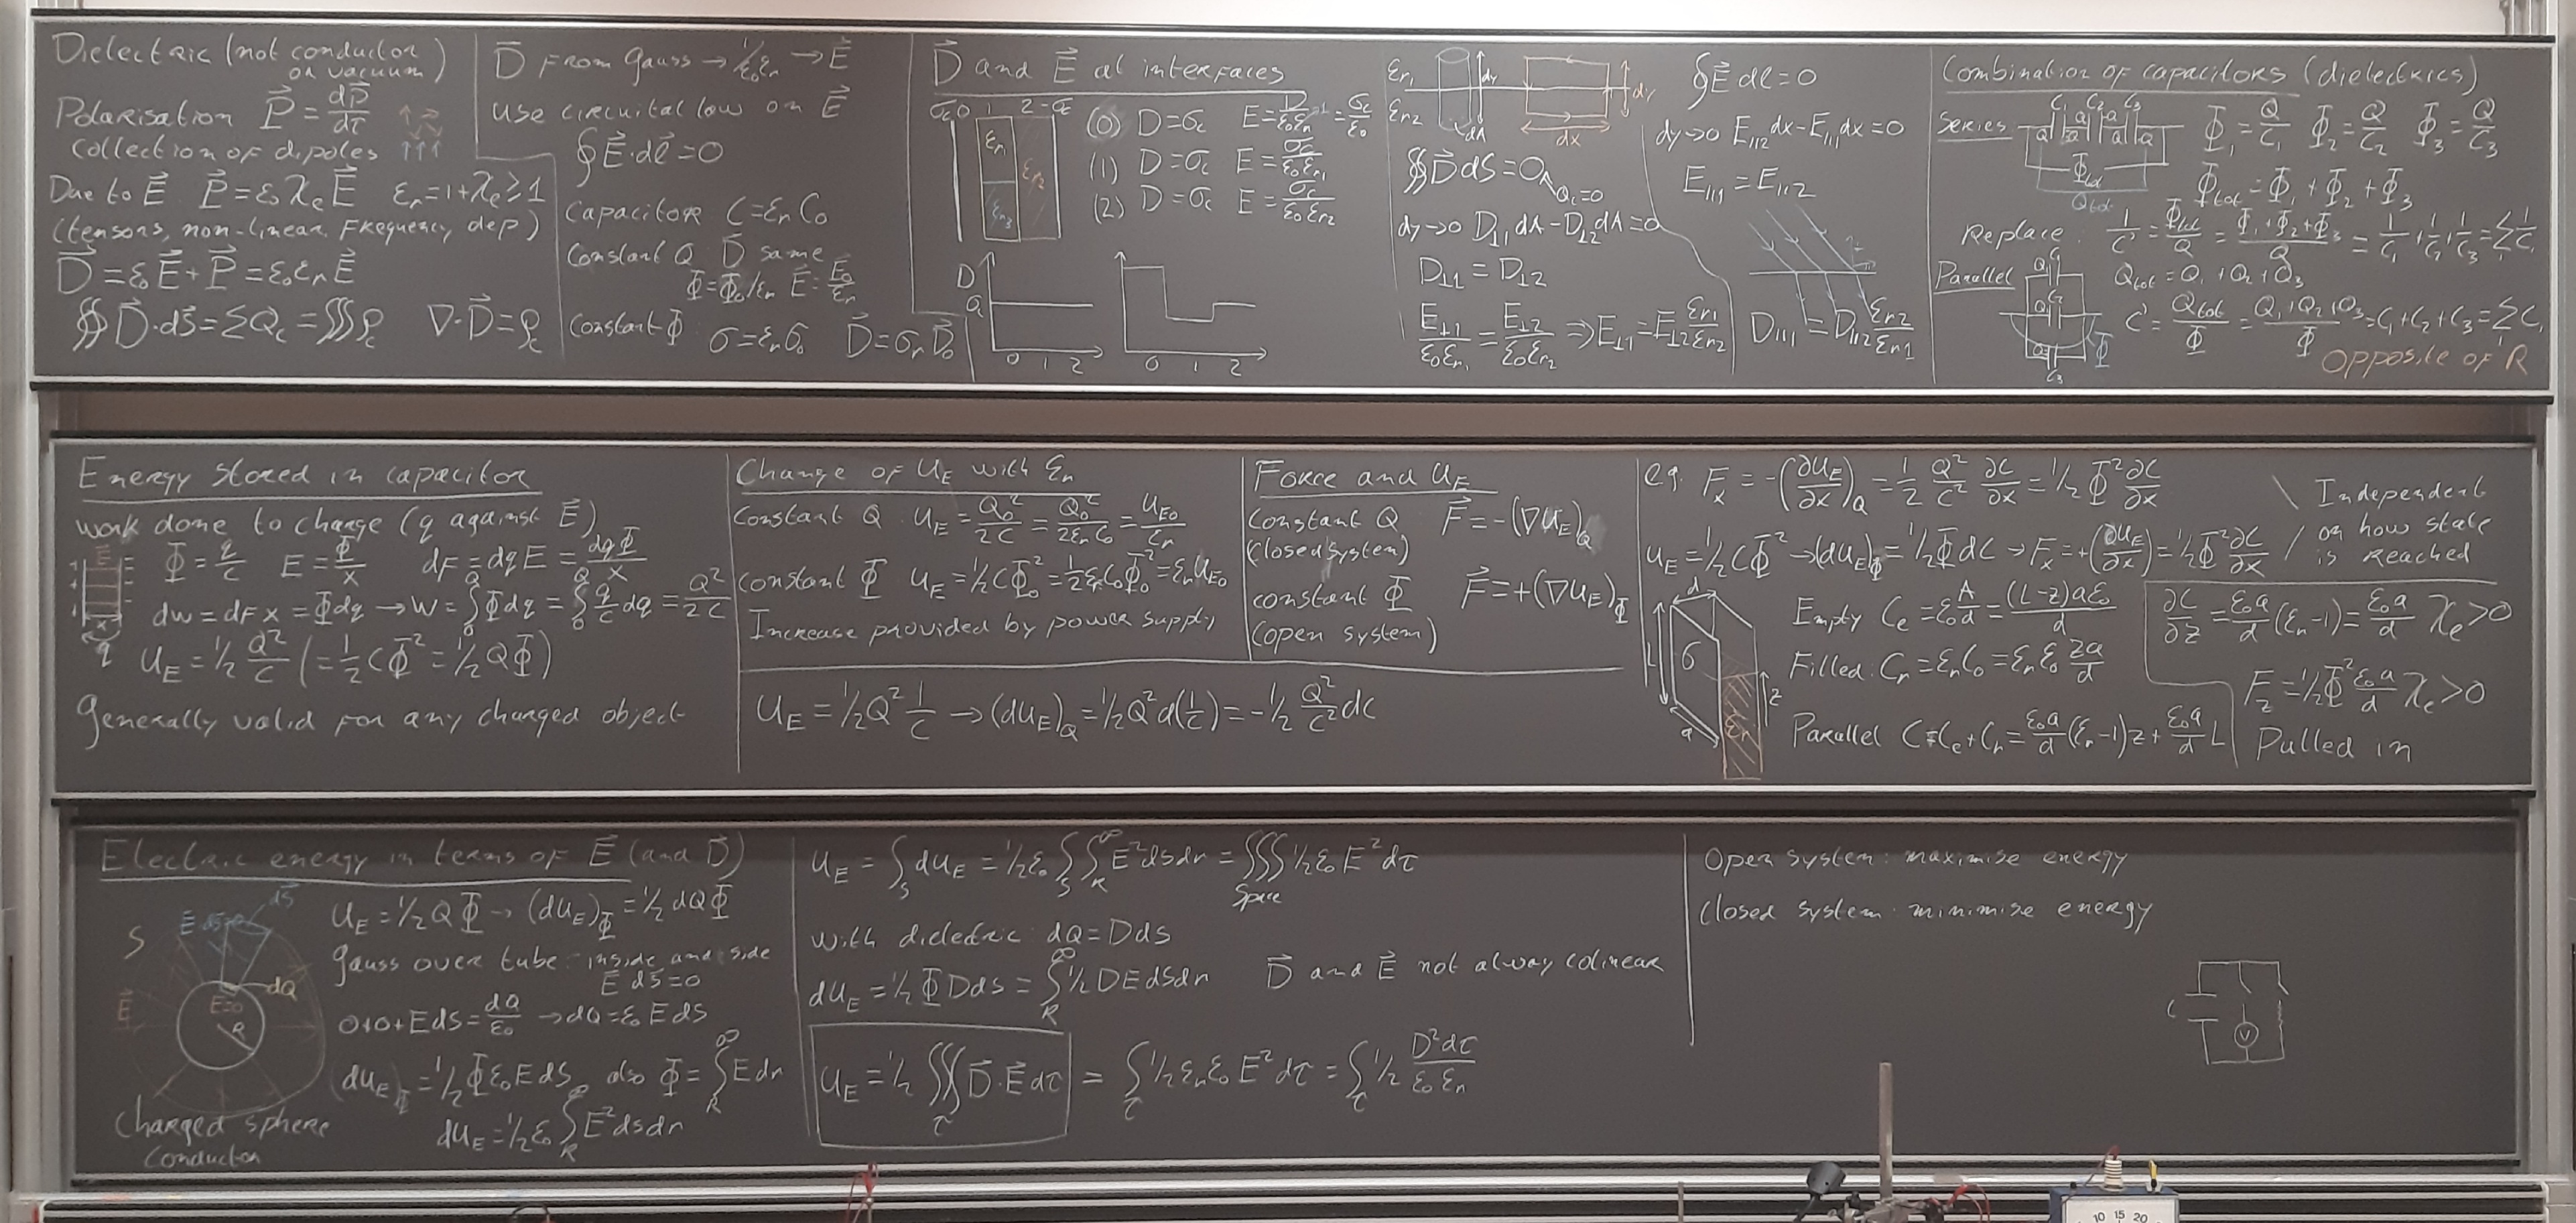 Dielectric (not conductor
or vacuum)
Polarisation P⃗ = dp⃗/dτ
collection of dipoles ↑↑↑
Due to E⃗ P⃗ = ε₀ χₑ E⃗ εᵣ = 1 + χₑ ≥ 1
(tensors, non-linear, Frequency dep)
D⃗ = ε₀ E⃗ + P⃗ = ε₀ εᵣ E⃗
∯ D⃗·dS⃗ = ΣQ_c = ∭ρ_c ∇·D⃗ = ρ_c
D⃗ From Gauss → 1/ε₀εᵣ → E⃗
use circuital low on E⃗
∮ E⃗·dℓ⃗ = 0
Capacitor C = εᵣ C₀
Constant Q D⃗ same
Φ = Φ₀/εᵣ E⃗ = E⃗₀/εᵣ
Constant Φ σ = εᵣ σ₀ D⃗ = σᵣ D⃗₀
D⃗ and E⃗ at interfaces
σ_c 0 1 2 -σ_c
εᵣ₁ εᵣ₂ εᵣ₃
(0) D = σ_c E = D/ε₀εᵣ = σ_c/ε₀
(1) D = σ_c E = σ_c/ε₀εᵣ₁
(2) D = σ_c E = σ_c/ε₀εᵣ₂
D
0 1 2
0 1 2
εᵣ₁ dy dy
εᵣ₂ dA dx
∯ D⃗ dS = 0 Q_c = 0
dy→0 D⊥₁ dA - D⊥₂ dA = 0
D⊥₁ = D⊥₂
E⊥₁/ε₀εᵣ₁ = E⊥₂/ε₀εᵣ₂ ⇒ E⊥₁ = E⊥₂ εᵣ₁/εᵣ₂
∮ E⃗ dℓ = 0
dy→0 E∥₂ dx - E∥₁ dx = 0
E∥₁ = E∥₂
D∥₁ = D∥₂ εᵣ₂/εᵣ₁
Combination of capacitors (dielectrics)
C₁ C₂ C₃
Series Φ₁ = Q/C₁ Φ₂ = Q/C₂ Φ₃ = Q/C₃
Φtot
Qtot
Φtot = Φ₁ + Φ₂ + Φ₃
Replace. 1/C' = Φtot/Q = (Φ₁ + Φ₂ + Φ₃)/Q = 1/C₁ + 1/C₂ + 1/C₃ = Σ 1/Cᵢ
Parallel Qtot = Q₁ + Q₂ + Q₃
C' = Qtot/Φ = (Q₁ + Q₂ + Q₃)/Φ = C₁ + C₂ + C₃ = ΣCᵢ
C₃ Φ
Opposite of R
Energy stored in capacitor
work done to charge (q against E⃗)
Φ = q/C E = Φ/x dF = dq E = dqΦ/x
dw = dF x = Φdq → W = ∫₀^Q Φdq = ∫₀^Q q/C dq = Q²/2C
q U_E = ½ Q²/C (= ½ CΦ² = ½ QΦ)
Generally valid for any charged object
Change of U_E with εᵣ
Constant Q U_E = Q₀²/2C = Q₀²/2εᵣC₀ = U_E₀/εᵣ
Constant Φ U_E = ½ CΦ₀² = ½ εᵣC₀Φ₀² = εᵣU_E₀
Increase provided by power supply
Force and U_E
Constant Q F⃗ = -(∇U_E)_Q
(closed system)
constant Φ F⃗ = +(∇U_E)_Φ
(open system)
U_E = ½Q² 1/C → (dU_E)_Q = ½Q² d(1/C) = -½ Q²/C² dC
e.g. F_x = -(∂U_E/∂x)_Q = ½ Q²/C² ∂C/∂x = ½ Φ² ∂C/∂x
U_E = ½CΦ² → (dU_E)_Φ = ½Φ² dC → F_x = +(∂U_E/∂x) = ½Φ² ∂C/∂x
Independent
on how state
is reached
d L σ a z εᵣ
Empty C_e = ε₀ A/d = (L-z)aε₀/d
Filled. Cᵣ = εᵣC₀ = εᵣε₀ za/d
Parallel C = C_e + Cᵣ = ε₀a/d (εᵣ-1)z + ε₀a/d L
∂C/∂z = ε₀a/d (εᵣ-1) = ε₀a/d χₑ > 0
F_z = ½Φ² ε₀a/d χₑ > 0
Pulled in
Electric energy in terms of E⃗ (and D⃗)
S E dS dS⃗
E⃗ E=0 dQ R
Charged sphere
conductor
U_E = ½QΦ → (dU_E)_Φ = ½ dQΦ
Gauss over tube: inside and side
E dS = 0
0+0+EdS = dQ/ε₀ → dQ = ε₀EdS
(dU_E)_Φ = ½Φε₀EdS also Φ = ∫_R^∞ E dr
dU_E = ½ε₀ ∫_R^∞ E² dsdr
U_E = ∫_S dU_E = ½ε₀ ∫_S ∫_R^∞ E² dsdr = ∭_Space ½ε₀E² dτ
with dielectric dQ = Dds
dU_E = ½ΦDds = ∫_R^∞ ½DEdsdr D⃗ and E⃗ not alway colinear
U_E = ½ ∭_τ D⃗·E⃗ dτ = ∫_τ ½εᵣε₀E² dτ = ∫_τ ½ D²dτ/ε₀εᵣ
Open system: maximise energy
Closed system: minimise energy
C V
10 15 20